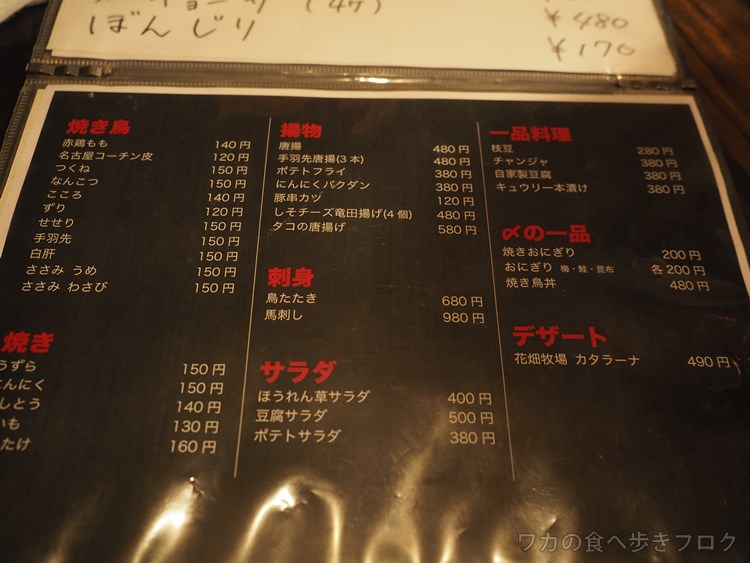 (4ケ) ¥480
ぼんじり ¥170
焼き鳥
赤鶏もも 140円
名古屋コーチン皮 120円
つくね 150円
なんこつ 150円
こころ 140円
ずり 120円
せせり 150円
手羽先 150円
白肝 150円
ささみ うめ 150円
ささみ わさび 150円
焼き
うずら 150円
んにく 150円
しとう 140円
いも 130円
たけ 160円
揚物
唐揚 480円
手羽先唐揚(3本) 480円
ポテトフライ 380円
にんにくバクダン 380円
豚串カツ 120円
しそチーズ竜田揚げ(4個) 480円
タコの唐揚げ 580円
刺身
鳥たたき 680円
馬刺し 980円
サラダ
ほうれん草サラダ 400円
豆腐サラダ 500円
ポテトサラダ 380円
一品料理
枝豆 280円
チャンジャ 380円
自家製豆腐 380円
キュウリ一本漬け 380円
〆の一品
焼きおにぎり 200円
おにぎり 梅・鮭・昆布 各200円
焼き鳥丼 480円
デザート
花畑牧場 カタラーナ 490円
ワカの食べ歩きブログ